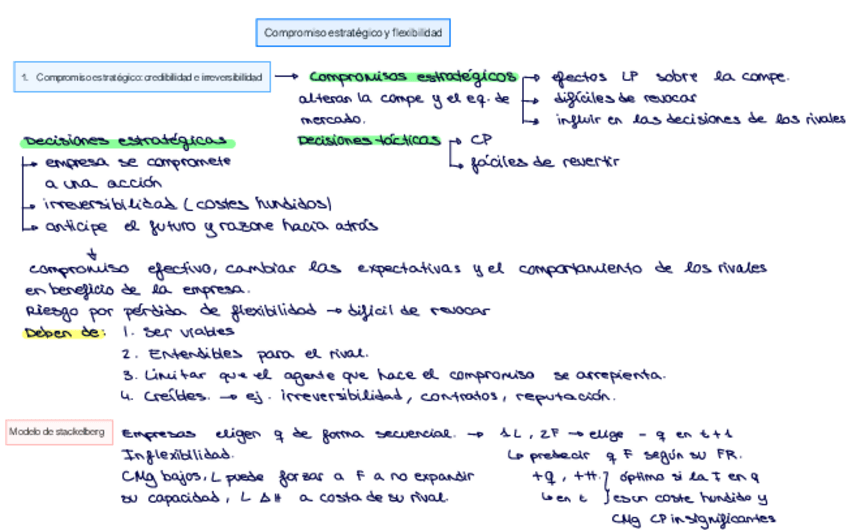 Compromiso estratégico y flexibilidad
1. Compromiso estratégico: credibilidad e irreversibilidad → Compromisos estratégicos → efectos LP sobre la compe.
alteran la compe y el eq. de → difíciles de revocar
mercado. → influir en las decisiones de los rivales
Decisiones estratégicas
Decisiones tácticas → CP
→ fáciles de revertir
→ empresa se compromete
a una acción
→ irreversibilidad (costes hundidos)
→ anticipe el futuro y razone hacia atrás
↓
compromiso efectivo, cambiar las expectativas y el comportamiento de los rivales
en beneficio de la empresa.
Riesgo por pérdida de flexibilidad → difícil de revocar
Deben de: 1. Ser viables
2. Entendibles para el rival.
3. Limitar que el agente que hace el compromiso se arrepienta.
4. Creíbles. → ej. irreversibilidad, contratos, reputación.
Modelo de stackelberg
Empresas eligen q de forma secuencial. → 1L, 2F → elige - q en t+1
Inflexibilidad. ↳ predecir q F según su FR.
CMg bajos, L puede forzar a F a no expandir
su capacidad, L Δ π a costa de su rival.
+q, +π. } óptimo si la I en q
↳ en t } es un coste hundido y
CMg CP insignificantes